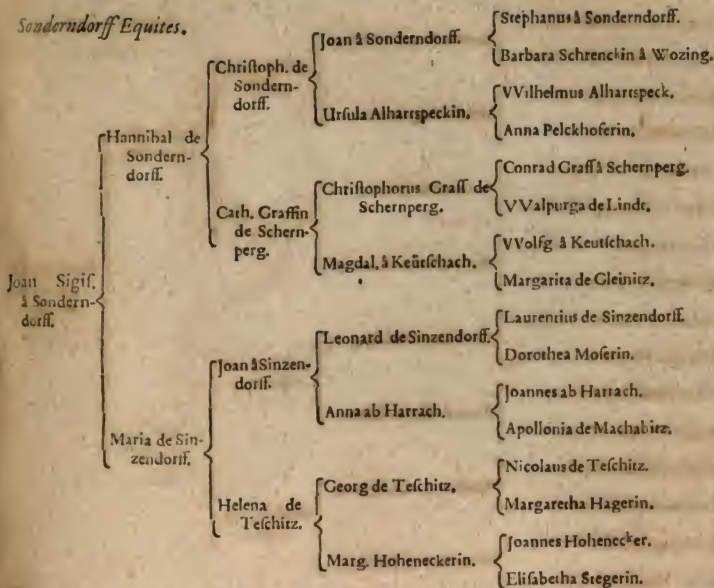 Sonderndorff Equites.
Joan Sigiſ.
â Sondern-
dorff.
Hannibal de
Sondern-
dorff.
Maria de Sin-
zendorff.
Chriſtoph. de
Sondern-
dorff.
Cath. Graffin
de Schern-
perg.
Joan â Sinzen-
dorff.
Helena de
Teſchitz.
Joan â Sonderndorff.
Urſula Alhartſpeckin.
Chriſtophorus Graff de
Schernperg.
Magdal. â Keütſchach.
Leonard de Sinzendorff.
Anna ab Harrach.
Georg de Teſchitz.
Marg. Hoheneckerin.
Stephanus â Sonderndorff.
Barbara Schrenckin â Wozing.
VVilhelmus Alhartſpeck.
Anna Pelckhoferin.
Conrad Graff â Schernperg.
VValpurga de Lindt.
VVolfg â Keutſchach.
Margarita de Gleinitz.
Laurentius de Sinzendorff.
Dorothea Moſerin.
Joannes ab Harrach.
Apollonia de Machabitz.
Nicolaus de Teſchitz.
Margaretha Hagerin.
Joannes Hohenecker.
Eliſabetha Stegerin.